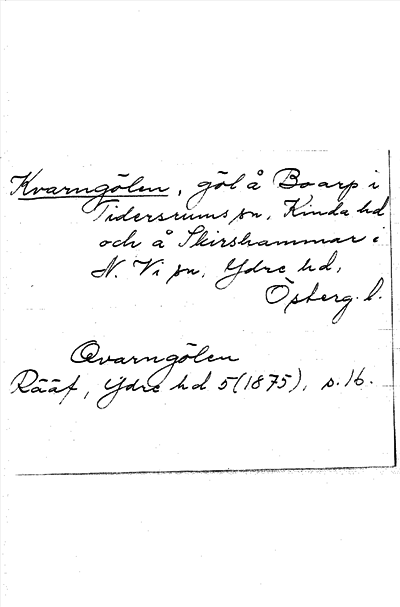 Kvarngölen, göl å Boarp i
Tidersrums sn, Kinda hd
och å Skirshammar i
N. Vi sn, Ydre hd,
Österg. l.
Qvarngölen
Rääf, Ydre hd 5(1875), s. 16.